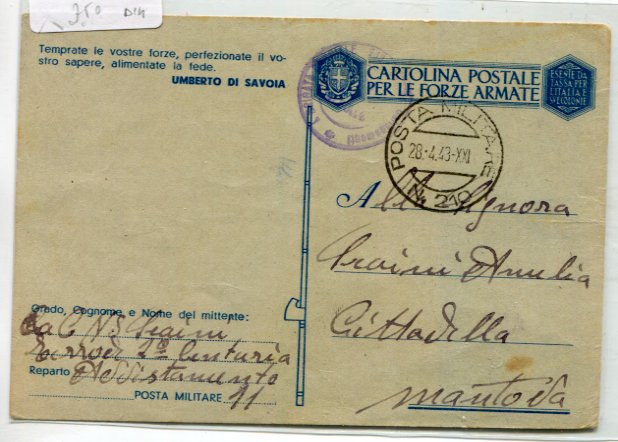 7.50 DIM
Temprate le vostre forze, perfezionate il vo-
stro sapere, alimentate la fede.
UMBERTO DI SAVOIA
CARTOLINA POSTALE
PER LE FORZE ARMATE
ESENTE DA
TASSA PER
L'ITALIA E
SVE COLONIE
POSTA MILITARE
28.4.43-XXI
N. 210
Alla Signora
Traini Amelia
Cittadella
Mantova
Grado, Cognome e Nome del mittente:
Traini
2a Centuria
Reparto
POSTA MILITARE 11